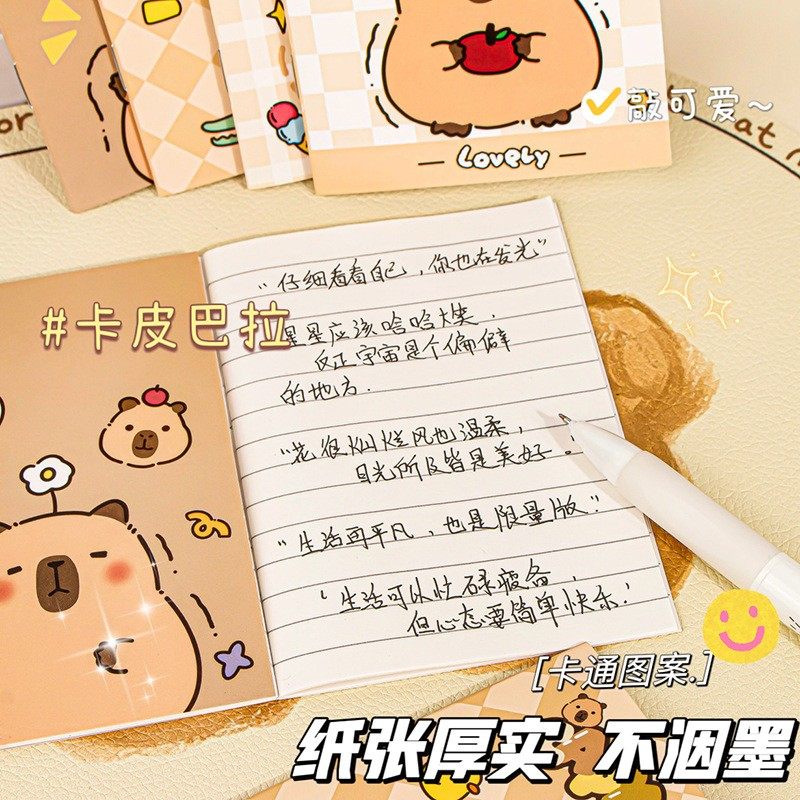 敲可爱~
— LoveLy —
#卡皮巴拉
"仔细看看自己,你也在发光"
星星应该哈哈大笑,
反正宇宙是个偏僻
的地方.
"花很灿烂风也温柔,
目光所及皆是美好!
"生活再平凡,也是限量版!"
'生活可以忙碌疲备,
但心态要简单快乐!
[卡通图案.]
纸张厚实 不洇墨